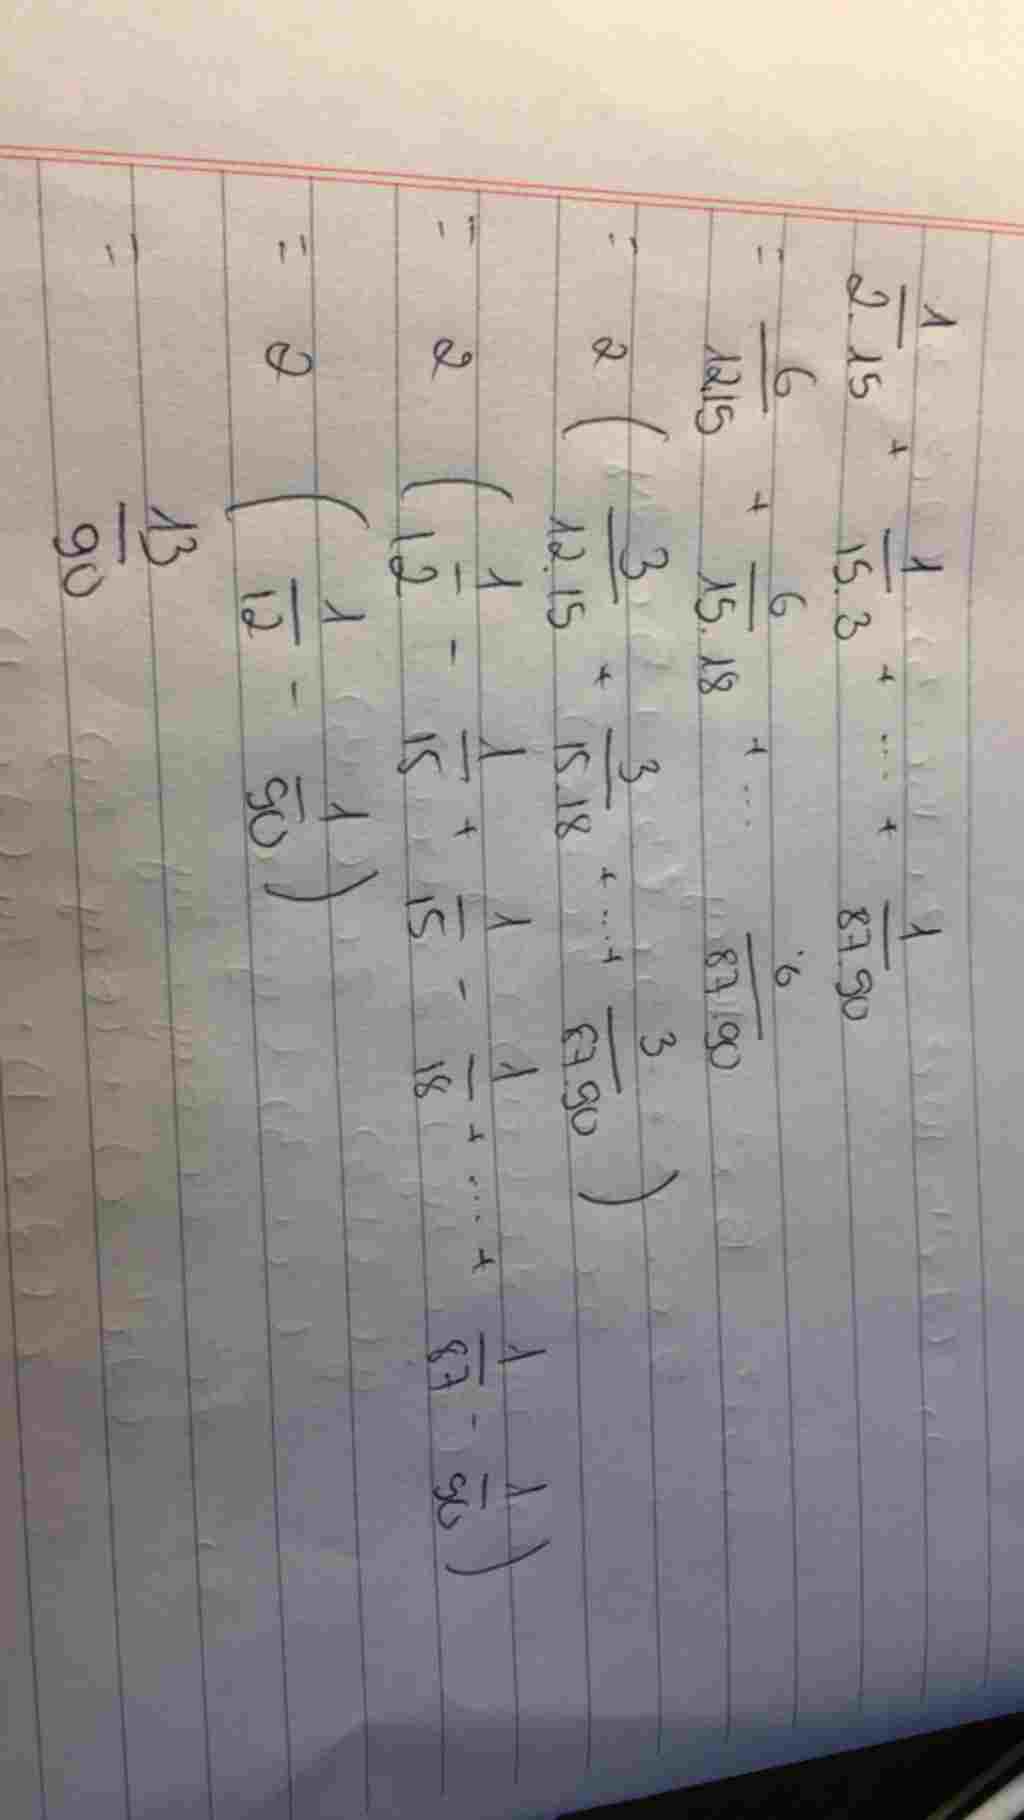 1/2.15 + 1/15.3 + ... + 1/87.90
= 6/12.15 + 6/15.18 + ... 6/87.90
= 2 ( 3/12.15 + 3/15.18 + ... + 3/87.90 )
= 2 ( 1/12 - 1/15 + 1/15 - 1/18 + ... + 1/87 - 1/90 )
= 2 ( 1/12 - 1/90 )
= 13/90